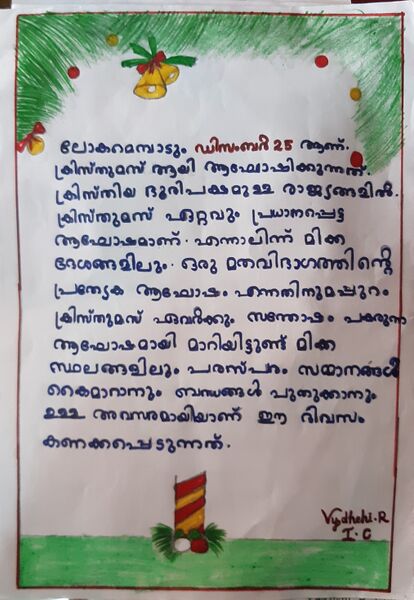 ലോകമെമ്പാടും ഡിസംബർ 25 ആണ്.
ക്രിസ്തുമസ് ആയി ആഘോഷിക്കുന്നത്.
ക്രിസ്തീയ ഭൂരിപക്ഷമുള്ള രാജ്യങ്ങളിൽ.
ക്രിസ്തുമസ് ഏറ്റവും പ്രധാനപ്പെട്ട
ആഘോഷമാണ്. എന്നാലിന്ന് മിക്ക
ദേശങ്ങളിലും. ഒരു മതവിഭാഗത്തിന്റെ
പ്രത്യേക ആഘോഷം എന്നതിനുമപ്പുറം
ക്രിസ്തുമസ് ഏവർക്കും സന്തോഷം പകരുന്ന
ആഘോഷമായി മാറിയിട്ടുണ്ട് മിക്ക
സ്ഥലങ്ങളിലും പരസ്പരം സമ്മാനങ്ങൾ
കൈമാറാനും ബന്ധങ്ങൾ പുതുക്കാനും
ഉള്ള അവസരമായിയാണ് ഈ ദിവസം
കണക്കപ്പെടുന്നത്.
Vydhehi.R
I.C